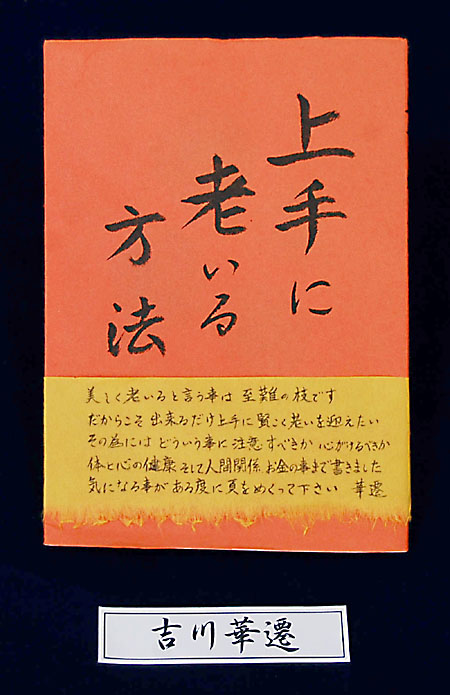 上手に
老いる
方法
美しく老いると言う事は 至難の技です
だからこそ 出来るだけ上手に賢こく老いを迎えたい
その為には どういう事に注意すべきか 心がけるべきか
体と心の健康 そして人間関係 お金の事まで書きました
気になる事がある度に頁をめくって下さい 華遷
吉川華遷